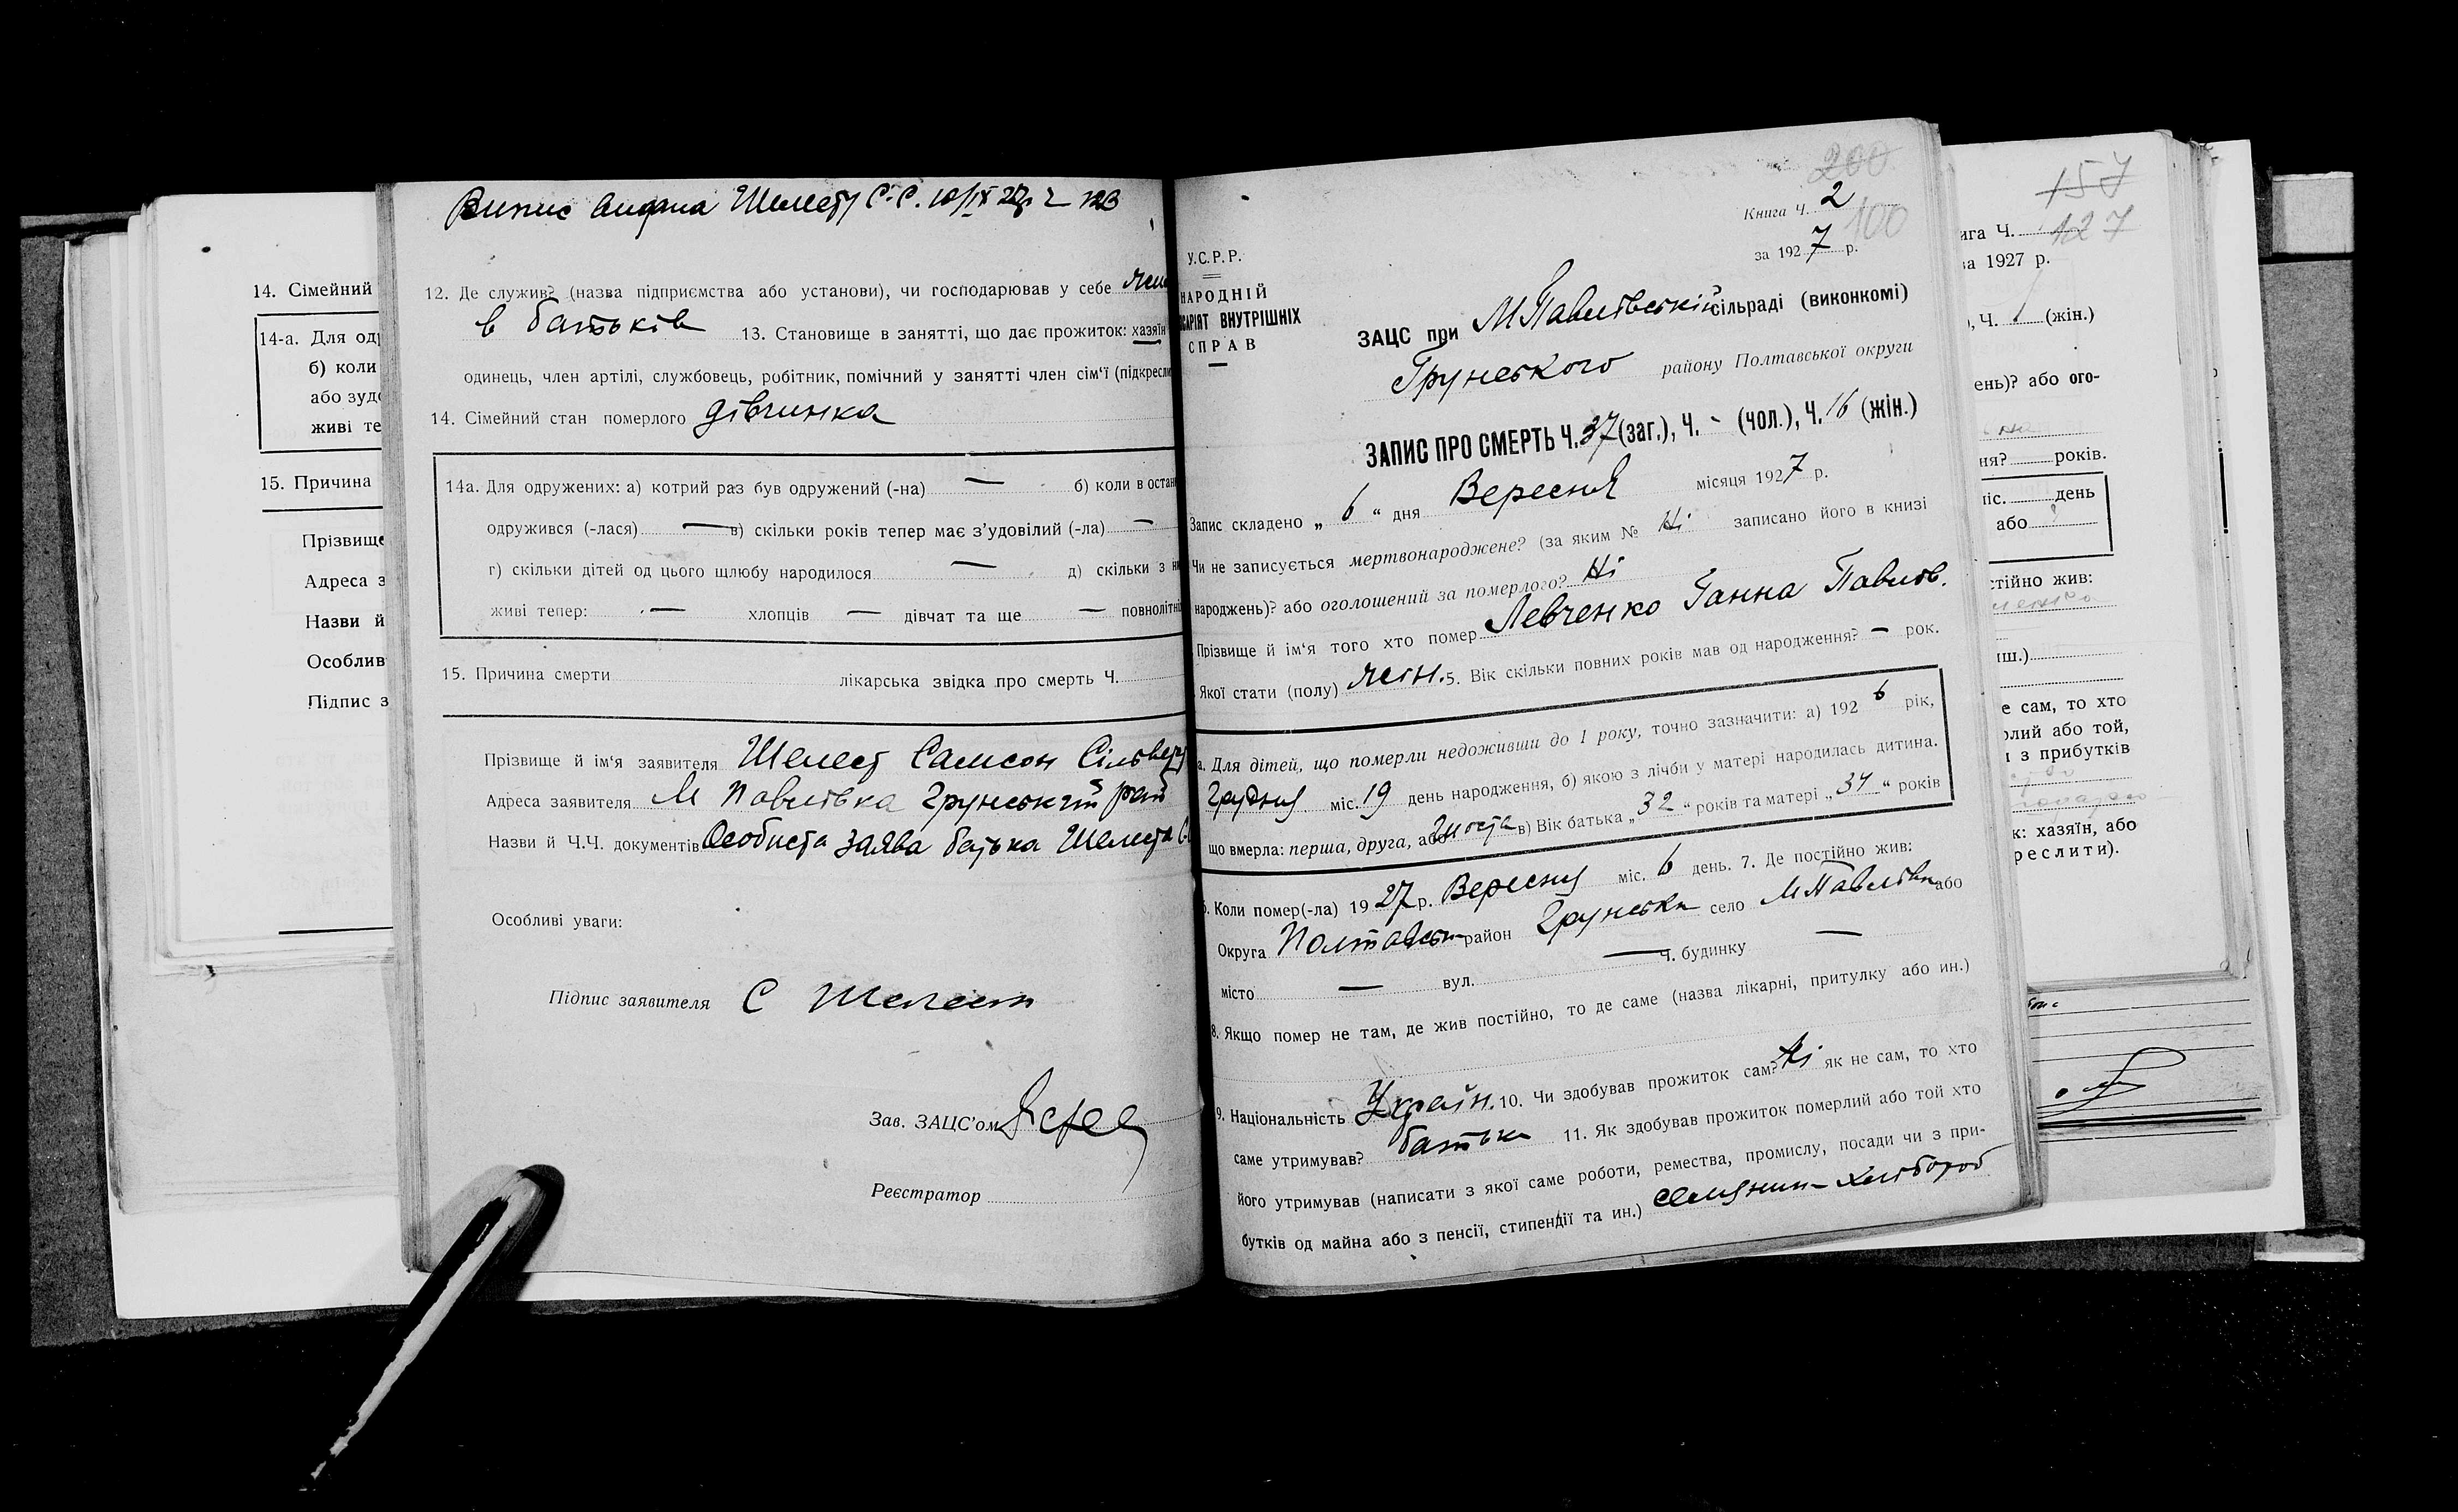 14. Сімейний
14-а. Для од
б) коли
або зуд
живі те
15. Причина
Прізвище
Адреса з
Назви й
Особлив
Підпис з
Випис видана Шелесту С.С. 10/IX 27р
12. Де служив? (назва підприємства або установи), чи господарював у себе жив
в батьків 13. Становище в занятті, що дає прожиток: хазяїн
одинець, член артілі, службовець, робітник, помічний у занятті член сім'ї (підкресли
14. Сімейний стан померлого дівчинка
14а. Для одружених: а) котрий раз був одружений (-на) — б) коли в остан
одружився (-лася) — в) скільки років тепер має з'удовілий (-ла) —
г) скільки дітей од цього щлюбу народилося — д) скільки з н
живі тепер: — хлопців — дівчат та ще — повноліт
15. Причина смерти лікарська звідка про смерть Ч.
Прізвище й ім'я заявителя Шелест Самсон Сільвер
Адреса заявителя М Павлівка Грунський рай
Назви й Ч.Ч. документів Особиста заява батька Шелеста С
Особливі уваги:
Підпис заявителя С Шелест
Зав. ЗАЦС'ом
Реєстратор
200
Книга Ч. 2
100
за 1927 р.
У.С.Р.Р.
НАРОДНІЙ
САРІЯТ ВНУТРІШНІХ
СПРАВ
ЗАЦС при МПавлівській сільраді (виконкомі)
Грунського району Полтавської округи
ЗАПИС ПРО СМЕРТЬ Ч. 37 (заг.), Ч. - (чол.), Ч. 16 (жін.)
Запис складено „ 6 “ дня Вересня місяця 1927 р.
Чи не записується мертвонароджене? (за яким № Ні записано його в книзі
народжень)? або оголошений за померлого? Ні
Прізвище й ім'я того хто помер Левченко Ганна Павлов.
Якої стати (полу) жін. 5. Вік скільки повних років мав од народження? — рок.
а. Для дітей, що померли недоживши до 1 року, точно зазначити: а) 1926 рік,
Грудня міс. 19 день народження, б) якою з лічби у матері народилась дитина.
що вмерла: перша, друга, або шоста в) Вік батька „ 32 “ років та матері „ 34 “ років
6. Коли помер(-ла) 1927 р. Вересня міс. 6 день. 7. Де постійно жив:
Округа Полтавськ район Грунськи село МПавлівка або
місто — вул. — Ч. будинку —
8. Якщо помер не там, де жив постійно, то де саме (назва лікарні, притулку або ин.)
9. Національність Україн. 10. Чи здобував прожиток сам? Ні як не сам, то хто
саме утримував? батьки 11. Як здобував прожиток померлий або той хто
його утримував (написати з якої саме роботи, ремества, промислу, посади чи з при-
бутків од майна або з пенсії, стипендії та ин.) селянин-хлібороб
157
ига Ч. 127
за 1927 р.
), Ч. (жін.)
ень)? або ого-
ня? років.
міс. день
або
стійно жив:
иш.)
е сам, то хто
рлий або той,
и з прибутків
к: хазяїн, або
реслити).